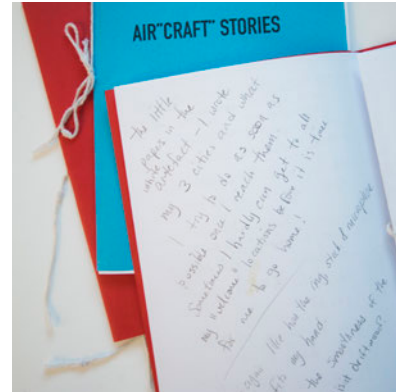 AIR"CRAFT" STORIES
the little
papers in the
white artefact - I wrote
my 3 cities and what
I try to do as soon as
possible once I reach them
Sometimes I hardly can get to all
my "welcome" locations before it is time
for me to go home!
again like how the ring sort of
fits my hand
the smoothness of the